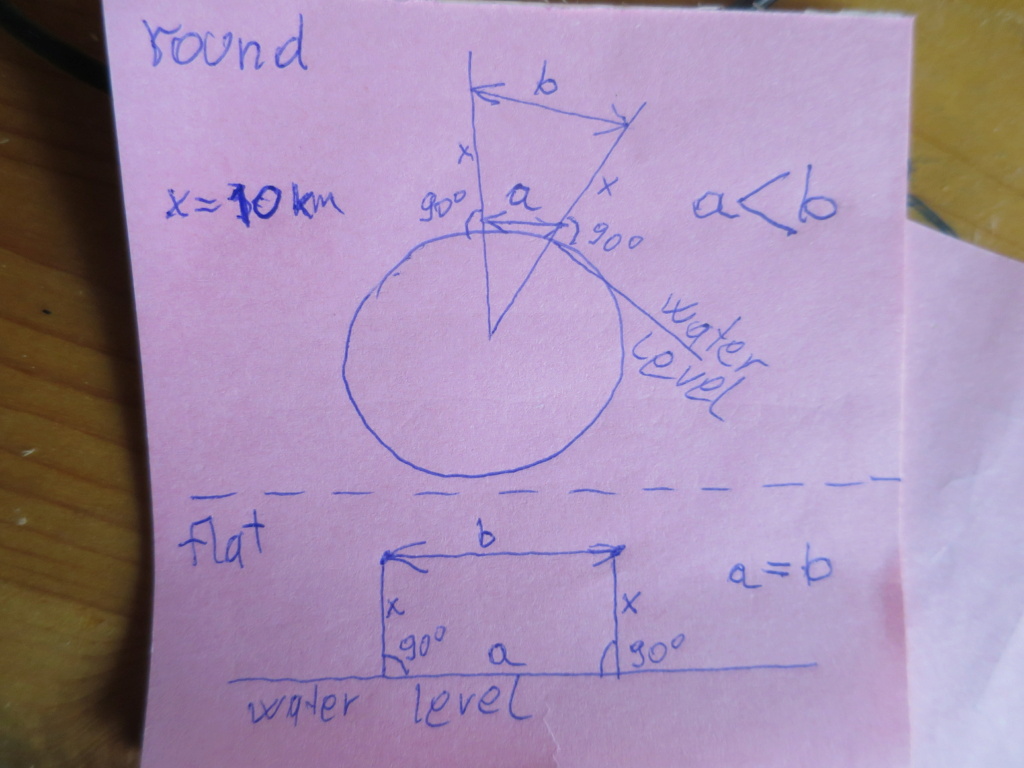 round
b
x
x
x = 10 km
90°
a
90°
a < b
water
level
flat
b
a = b
x
x
90°
a
90°
water level